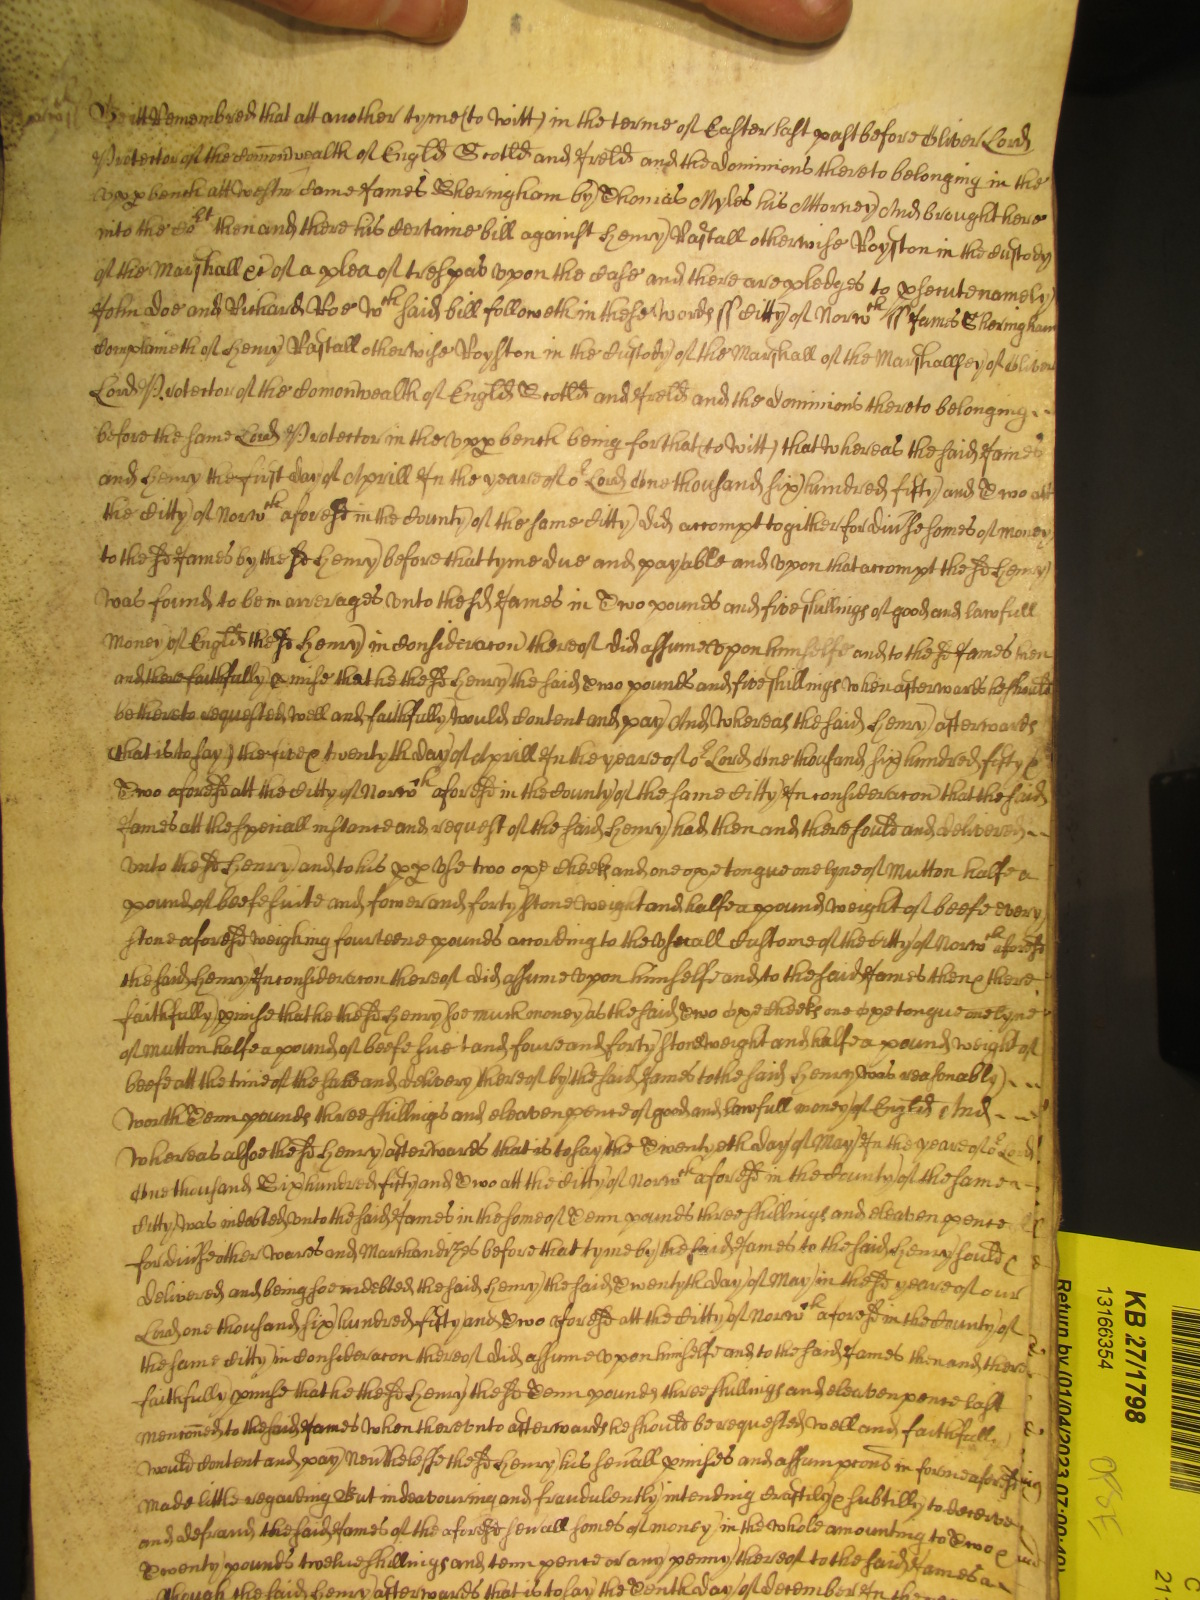 Be itt Remembred that att another tyme (to witt) in the terme of Easter last past before Oliver Lord
Protector of the Comonwealth of Engld Scotld and Ireld and the dominions thereto belonging in the
upp bench att Westm̃ came James Sheringham by Thomas Myles his Attorney And brought here
into the Cort then and there his certaine bill against Henry Rastall otherwise Royston in the custody
of the Marshall &c of a plea of trespas upon the case and there are pledges to psecute namely
John Doe and Richard Roe Wch said bill followeth in these words ss Citty of Norwch ss James Sheringham
complaineth of Henry Rastall otherwise Royston in the custody of the Marshall of the Marshallsey of Oliver
Lord Protector of the Comonwealth of Engld Scotld and Ireld and the dominions thereto belonging
before the same Lord Protector in the upp bench being for that (to witt) that whereas the said James
and Henry the first day of Aprill In the yeare of or Lord One thousand six hundred fifty and Two att
the Citty of Norwch aforesd in the County of the same Citty did accompt togither for divse somes of money
to the sd James by the sd Henry before that tyme due and payable and upon that accompt the sd Henry
was found to be in arrerages unto the sd James in Two pounds and five shillings of good and lawfull
money of Englð the sd Henry in consideracon thereof did assume upon himselfe and to the sd James then
and there faithfully pmise that he the sd Henry the said Two pounds and five shillings when afterwards he should
be thereto requested well and faithfully would content and pay And whereas the said Henry afterwards
(that is to say) the five & twentyth day of Aprill In the yeare of or Lord One thousand six hundred fifty &
Two aforesd att the Citty of Norwch aforesd in the County of the same Citty In consideracon that the said
James att the speciall instance and request of the said Henry had then and there sould and delivered
unto the sd Henry and to his pp use two oxe cheeks and one oxe tongue one lyne of Mutton halfe a
pound of beefe suite and fower and forty stone weight and halfe a pound weight of beefe every
stone aforesd weighing fourteene pounds according to the usuall custome of the Citty of Norwch aforesd
the said Henry In consideracon thereof did assume upon himselfe and to the said James then & there
faithfully pmise that he the sd Henry soe much money as the said Two oxe cheeks one oxe tongue one lyne
of Mutton halfe a pound of beefe suet and foure and forty stone weight and halfe a pound weight of
beefe att the time of the sale and delivery thereof by the said James to the said Henry was reasonably
worth Tenn pounds three shillings and eleaven pence of good and lawfull money of Englð And
whereas alsoe the sd Henry afterwards that is to say the Twentyeth day of May In the yeare of or Lord
One thousand Six hundred fifty and Two att the Citty of Norwch aforesd in the County of the same
Citty was indebted unto the said James in the some of Tenn pounds three shillings and eleaven pence
for divse other wares and Marchandizes before that tyme by the said James to the said Henry sould &
delivered and being soe indebted the said Henry the said Twentyth day of May in the sd yeare of our
Lord one thousand six hundred fifty and Two aforesd att the Citty of Norwch aforesd in the County of
the same Citty in consideracon thereof did assume upon himselfe and to the said James then and there
faithfully pmise that he the sd Henry the sd Tenn pounds three shillings and eleaven pence last
menconed to the said James when thereunto afterwards he should be requested well and faithfully
would content and pay Nevthelesse the sd Henry his sevall pmises and assumpcons in forme aforesd
made little regarding But indeavouring and fraudulently intending craftily & subtilly to deceive
and defraud the said James of the aforesd sevall somes of money in the whole amounting to Two &
Twenty pounds twelve shillings and tenn pence or any penny thereof to the said James
though the said Henry afterwards that is to say the Tenth day of December In the
KB 27/1798
13166354
Return by (01/04/2023 07:00:40)